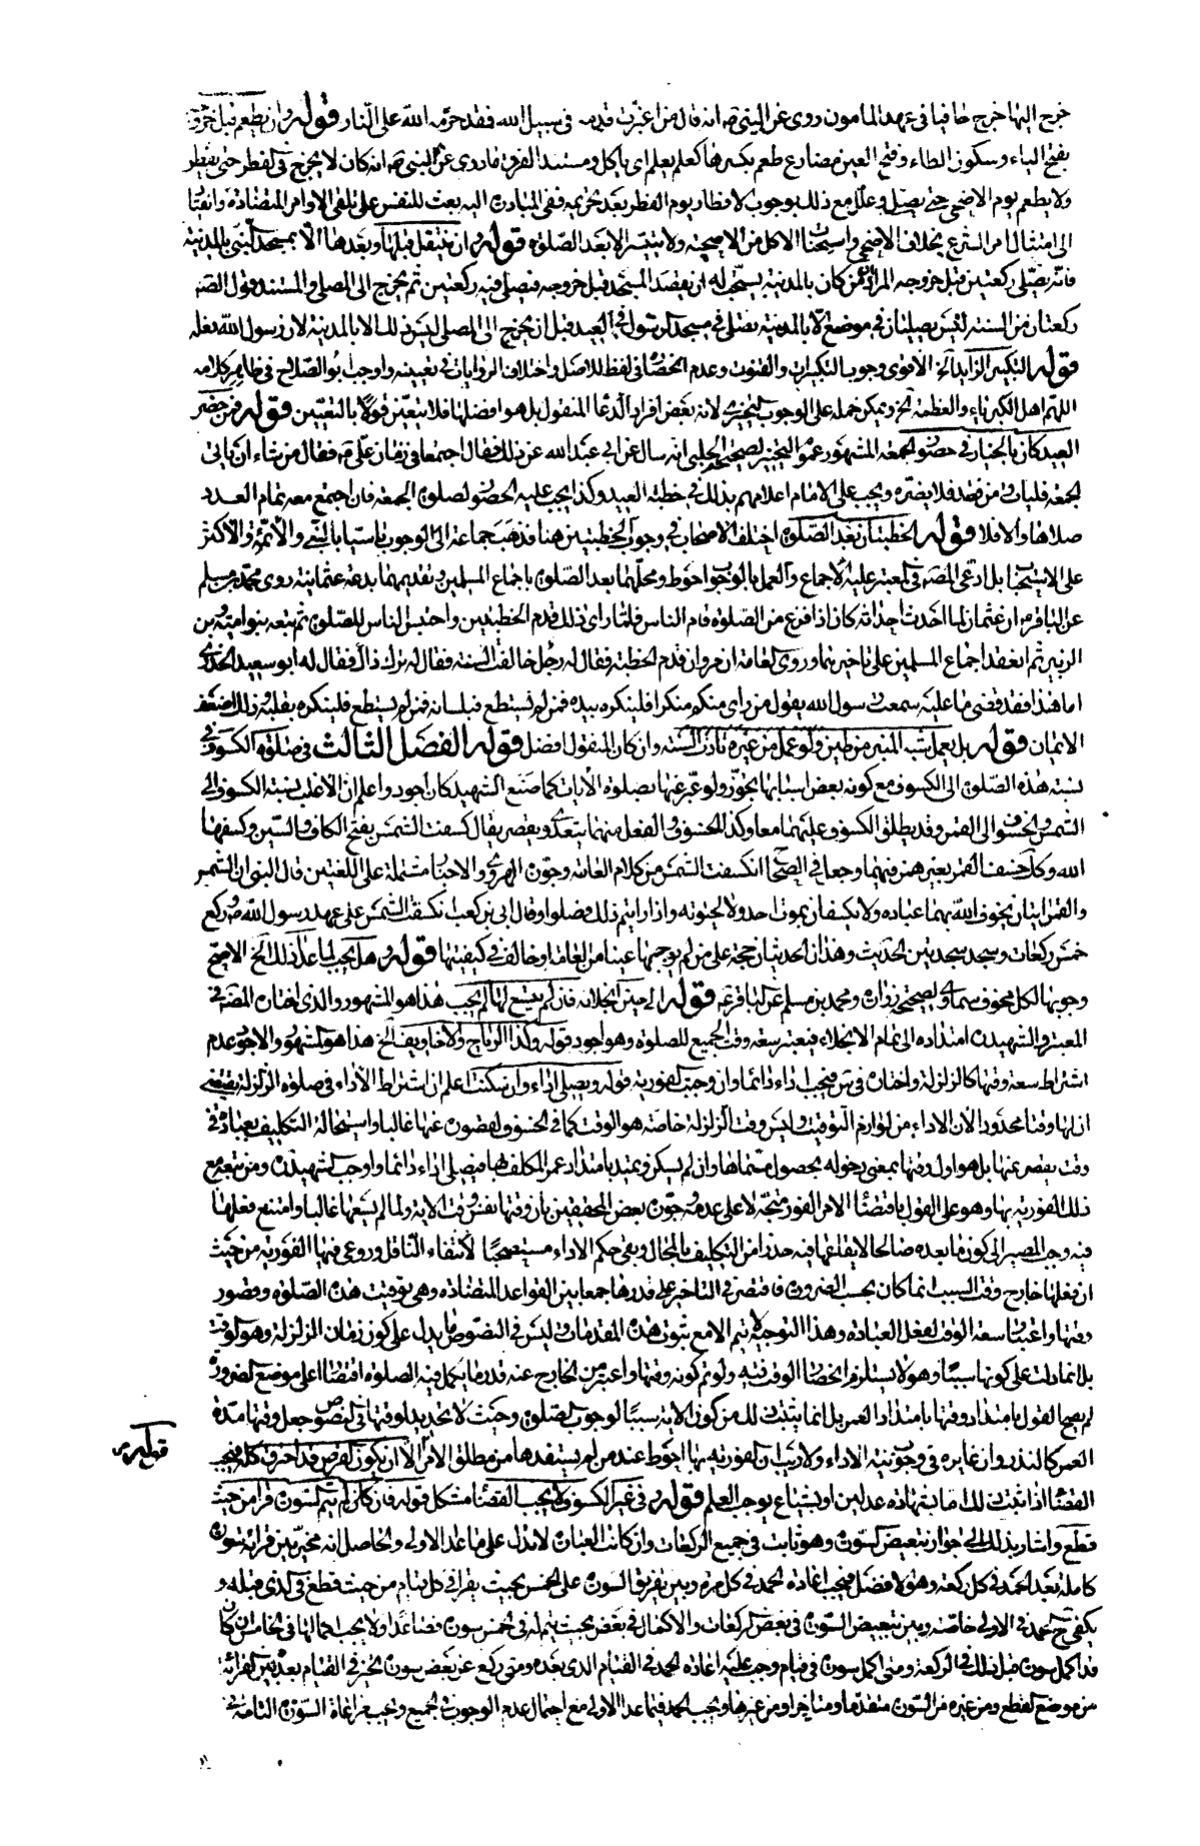 خرج اليها خرج حافيا في عهد المامون روى عن النبي ص انه قال من اغبرت قدمه في سبيل الله فقد حرمه الله على النار قوله وان يطعم قبل خروجه
بفتح الياء وسكون الطاء وفتح العين مضارع طعم بكسرها كعلم يعلم اى ياكل ومستند الفرق ما روى عن النبي ص انه كان لا يخرج في الفطر حتى يفطر
ولا يطعم يوم الاضحى حتى يصلى وعلل مع ذلك بوجوب الافطار يوم الفطر بعد تحريمه ففى المبادرة اليه بعث للنفس على تلقى الاوامر المتضادة وانقيادا
الى امتثال امر الشرع بخلاف الاضحى واستحباب الاكل من الاضحية ولا يتيسر الا بعد الصلوة قوله وان يتنفل قبلها وبعدها الا بمسجد النبي بالمدينة
فانه يصلى ركعتين قبل خروجه المراد من كان بالمدينة يستحب له ان يقصد المسجد قبل خروجه فيصلى فيه ركعتين ثم يخرج الى المصلى والمستند قول الصادق
ركعتان من السنة ليس يصليان في موضع الا بالمدينة يصلى في مسجد الرسول في العيد قبل ان يخرج الى المصلى ليس ذلك الا بالمدينة لان رسول الله فعله
قوله التكبير الزايد الخ الاقوى وجوب التكبيرات والقنوت وعدم انحصاره في لفظ للاصل واختلاف الروايات في تعيينه واوجب ابو الصلاح في ظاهر كلامه
اللهم اهل الكبرياء والعظمة الخ ويمكن حمله على الوجوب التخييرى لانه بعض افراد الدعا المنقول بل هو افضلها فلا يتعين قولا بالتعيين قوله فمن حضر
العيد كان بالخيار في حضور الجمعة المشهور عموم التخيير لصحيحة الحلبى انه سال عن ابى عبد الله عن ذلك فقال اجتمعا في زمان على ع فقال من شاء ان ياتى
الجمعة فليات ومن قعد فلا يضره ويجب على الامام اعلامهم بذلك في خطبة العيد وكذا يجب عليه الحضور لصلوة الجمعة فان اجتمع معه تمام العدد
صلاها والا فلا قوله الخطبتان بعد الصلوة اختلف الاصحاب في وجوب الخطبتين هنا فذهب جماعة الى الوجوب تاسيا بالنبى والائمة والاكثر
على الاستحباب بل ادعى المصنف في المعتبر عليه الاجماع والعمل بالوجوب احوط ومحلهما بعد الصلوة باجماع المسلمين وتقديمهما بدعة عثمانية روى محمد بن مسلم
عن الباقر ع ان عثمان لما احدث احداثه كان اذا فرغ من الصلوة قام الناس فلما راى ذلك قدم الخطبتين واحتبس الناس للصلوة ثم تبعه بنو امية وبن
الزبير ثم انعقد اجماع المسلمين على تاخيرهما وروى العامة ان مروان قدم الخطبة فقال له رجل خالفت السنة فقال له ترك ذاك فقال له ابو سعيد الخدرى
اما هذا فقد قضى ما عليه سمعت رسول الله يقول من راى منكم منكرا فلينكره بيده فمن لم يستطع فبلسانه فمن لم يستطع فلينكره بقلبه وذلك اضعف
الايمان قوله بل يعمل شبه المنبر من طين ولو عمل من غيره تادت السنة وان كان المنقول افضل قوله الفصل الثالث في صلوة الكسوف
نسبة هذه الصلوة الى الكسوف مع كونه بعض اسبابها تجوز ولو عبر عنها بصلوة الايات كما صنع الشهيد كان اجود واعلم ان الاغلب نسبة الكسوف الى
الشمس والخسوف الى القمر وقد يطلق الكسوف عليهما معا وكذا الخسوف والفعل منهما يتعدى ويقصر يقال كسفت الشمس بفتح الكاف والسين وكسفها
الله وكذا خسف القمر بغير همز فيهما وجعل في الصحاح انكسفت الشمس من كلام العامة وجوزه الهروى والاخبار مشتملة على اللغتين قال النبى ان الشمس
والقمر ايتان يخوف الله بهما عباده ولا يكسفان بموت احد ولا لحيوته واذا رايتم ذلك فصلوا وقال ابى بن كعب انكسفت الشمس على عهد رسول الله ص فركع
خمس ركعات وسجد سجدتين الحديث وهذان الحديثان حجة على من لم يوجبها عينا من العامة او خالف في كيفيتها قوله وهل يجب لما عدا ذلك الخ الاصح
وجوبها لكل مخوف سماوى لصحيحتى زرارة ومحمد بن مسلم عن الباقر ع قوله الى حين انجلائه فان لم يتسع لها لم يجب هذا هو المشهور والذى اختاره المصنف في
المعتبر والشهيد ره امتداده الى تمام الانجلاء فيعتبر سعة وقت الجميع للصلوة وهو اجود قوله وكذا الرياح والاخاويف الخ هذا هو المشهور والاجود عدم
اشتراط سعة وقتها كالزلزلة واختاره في س فيجب اداء دائما وان وجبت الفورية قوله ويصلى اداء وان سكنت اعلم ان اشتراط الاداء في صلوة الزلزلة يقتضى
ان لها وقتا محدودا لان الاداء من لوازم التوقيت وليس وقت الزلزلة خاصة هو الوقت كما في الخسوف لقصوره عنها غالبا واستحالة التكليف بعبادة في
وقت يقصر عنها بل هو اول وقتها بمعنى دخوله بحصول مسماها وان لم يسكن ويمتد بامتداد عمر المكلف بها فيصلى اداء دائما واوجب الشهيد ره ومن تبعه مع
ذلك الفورية بها وهو على القول باقتضاء الامر الفور متجه لا على عدمه وجوز بعض المحققين بان وقتها نفس وقت الاية ولما لم يسعها غالبا وامتنع فعلها
فيه وجب المصير الى كون ما بعده صالحا لايقاعها فيه حذرا من التكليف بالمحال وبقى حكم الاداء مستصحبا لانتفاء الناقل وروعى فيها الفورية من حيث
ان فعلها خارج وقت السبب انما كان بحسب الضرورة فاقتصر في التاخير على قدرها جمعا بين القواعد المتضادة وهى توقيت هذه الصلوة وقصور
وقتها واعتبار سعة الوقت لفعل العبادة وهذا التوجيه لا يتم الا مع ثبوت هذه المقدمات وليس في النصوص ما يدل على كون زمان الزلزلة وهو الوقت
بل انما دلت على كونها سببا وهو لا يستلزم انحصار الوقت فيه ولو تم كونه وقتها واعتبر من الخارج عنه قدر ما يكمل فيه الصلوة اقتصارا على موضع الضرورة
لم يصح القول بامتداد وقتها بامتداد العمر بل انما يثبت ذلك من كون الاية سببا لوجوب الصلوة وحيث لا تحديد لوقتها في النصوص جعل وقتها مدة
العمر كالنذر وان غايره في وجوب نية الاداء ولا ريب ان الفورية بها احوط عند من لم يستفدها من مطلق الامر الا ان يكون القرص قد احترق كله فيجب
القضاء اذا ثبت ذلك اما بشهادة عدلين او بشياع يوجب العلم قوله وفى غير الكسوف لا يجب القضاء مشكل قوله فان كان لم يتم السورة قرا من حيث
قطع واشار بذلك الى جواز تبعيض السورة وهو ثابت في جميع الركعات وان كانت العبارة لا تدل على ما عدا الاولى والحاصل انه مخير بين قرائة سورة
كاملة بعد الحمد في كل ركعة وهو الافضل فيجب اعادة الحمد في كل مرة وبين تفريق السورة على الخمس بحيث يقرا في كل قيام من حيث قطع في الذى قبله و
يكفى ح الحمد في الاولى خاصة وبين تبعيض السورة في بعض الركعات والاكمال في بعض بحيث يتم له في الخمس سورة فصاعدا ولا يجب اكمالها في الخامس ان كان
قد اكمل سورة قبل ذلك في الركعة ومتى اكمل سورة في قيام وجب عليه اعادة الحمد في القيام الذى بعده ومتى ركع عن بعض سورة تخير في القيام بعده بين القرائة
من موضع القطع ومن غيره من السورة متقدما ومتاخرا ومن غيرها ويجب الحمد فيما عدا الاولى مع احتمال عدم الوجوب في الجميع ويجب مراعاة السورة التامة في